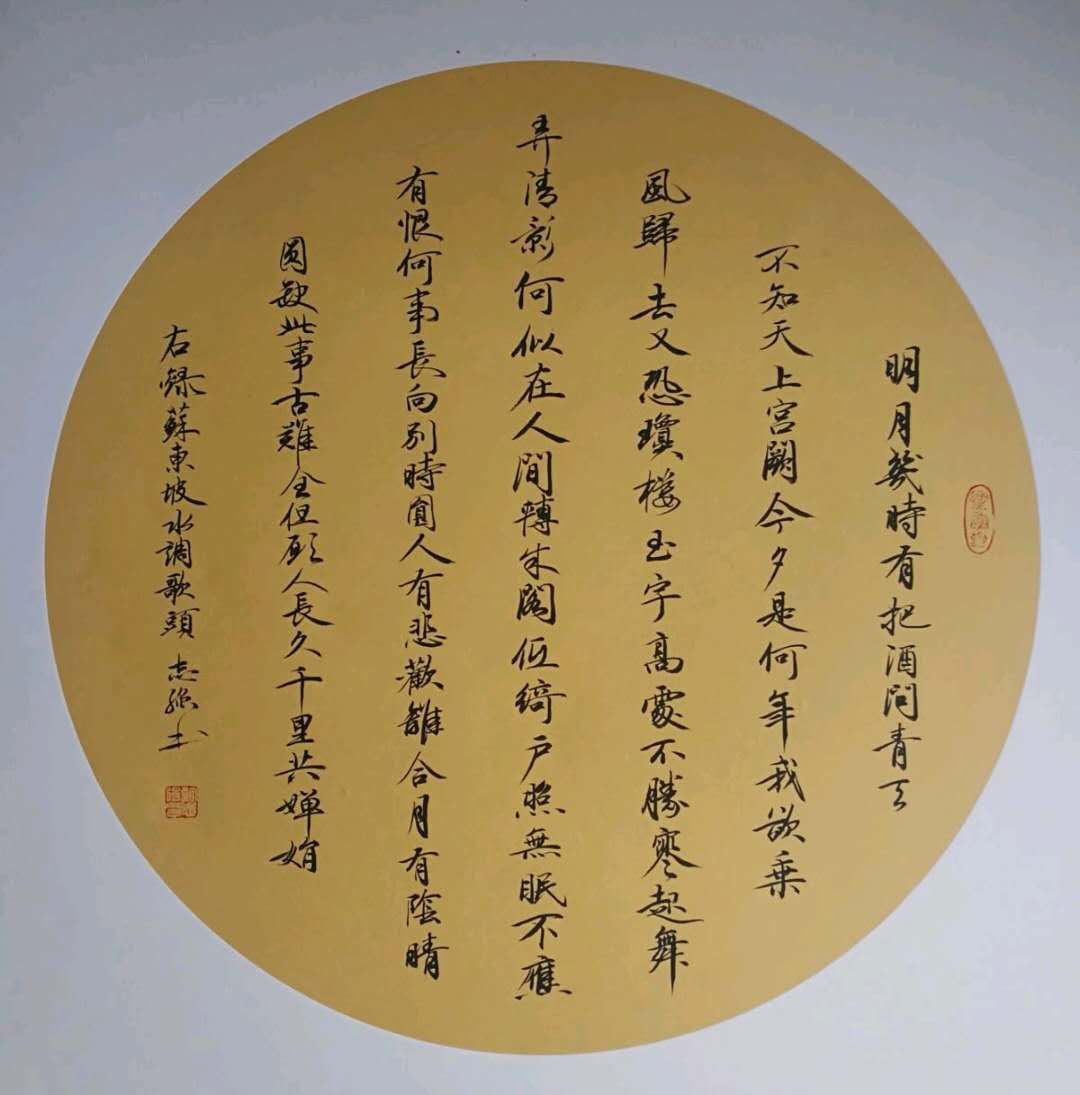 明月幾時有把酒问青天
不知天上宫闕今夕是何年我欲乗
風歸去又恐瓊楼玉宇高處不勝寒起舞
弄清影何似在人間轉朱閣低綺户照無眠不應
有恨何事長向别時圓人有悲歡離合月有陰晴
圆缺此事古難全但願人長久千里共嬋娟
右録蘇東坡水調歌頭 志強书